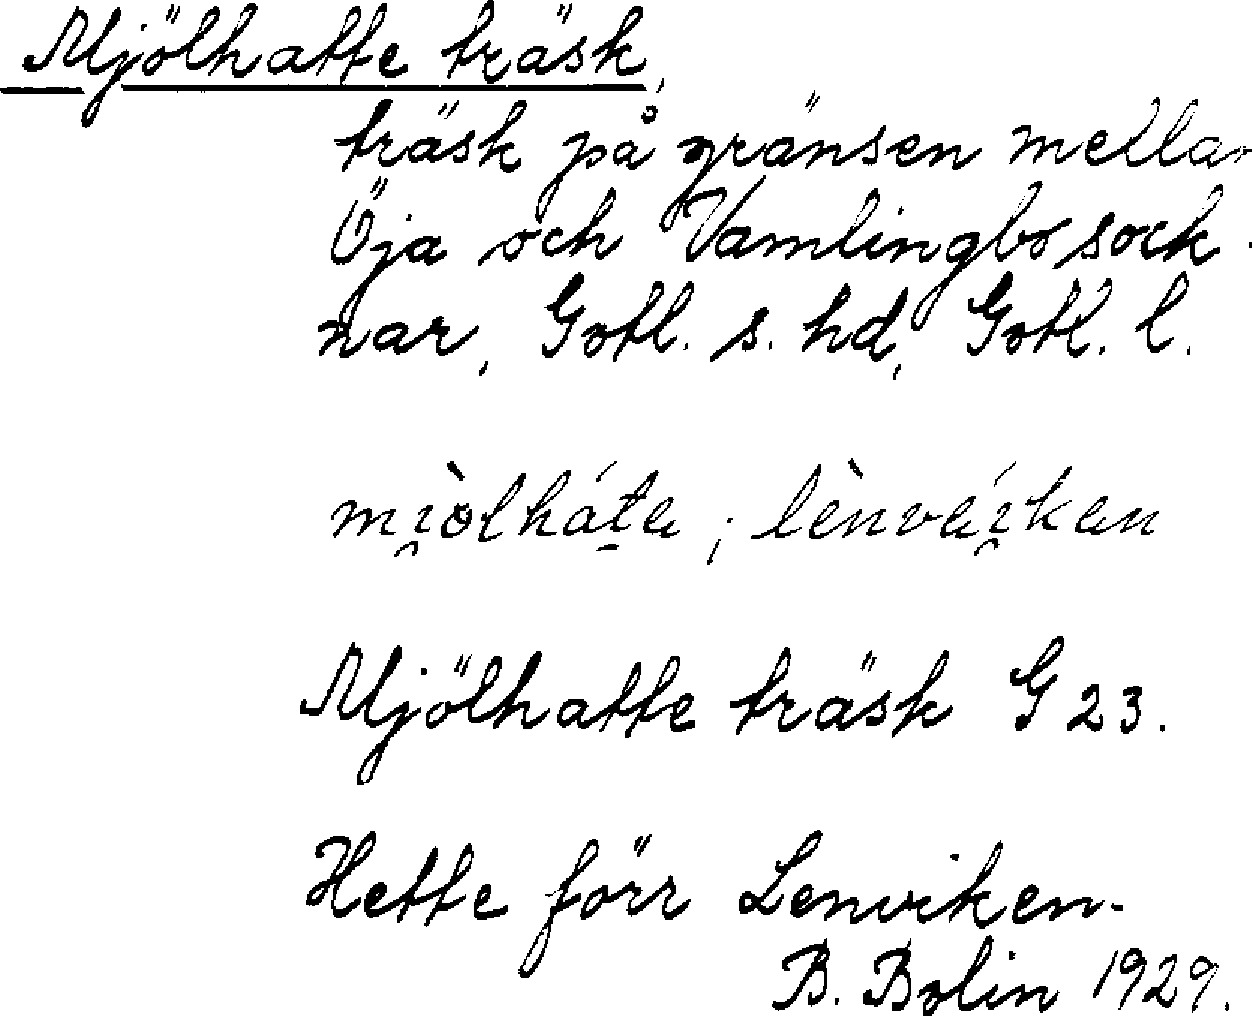 Mjölhatte träsk,
träsk på gränsen mellan
Öja och Vamlingbo sock-
nar, Gotl. s. hd, Gotl. l.
mi̯òlháta ; lènvái̯kan
Mjölhatte träsk G 23.
Hette förr Lenviken.
B. Bolin 1929.